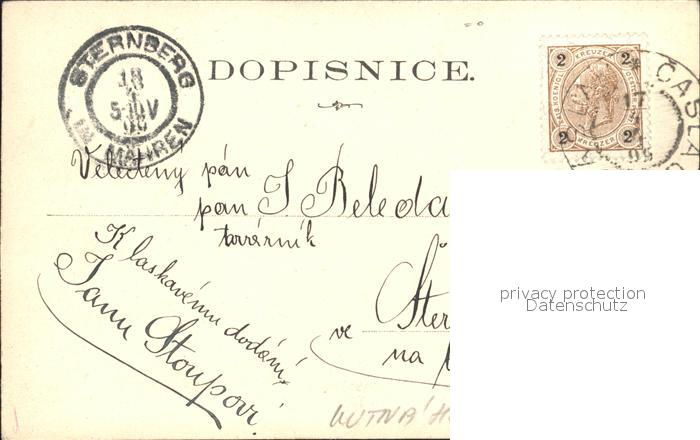 STERNBERG
18
IN MÄHREN
DOPISNICE.
KREUZER
2 2
2 2
KREUZER
ČÁSLA
17
Veletěný pán
pan J. Beleda
továrník
ve Šter
na
K laskavému dodání
Janu Stoupovi
KUTNÁ H
privacy protection
Datenschutz